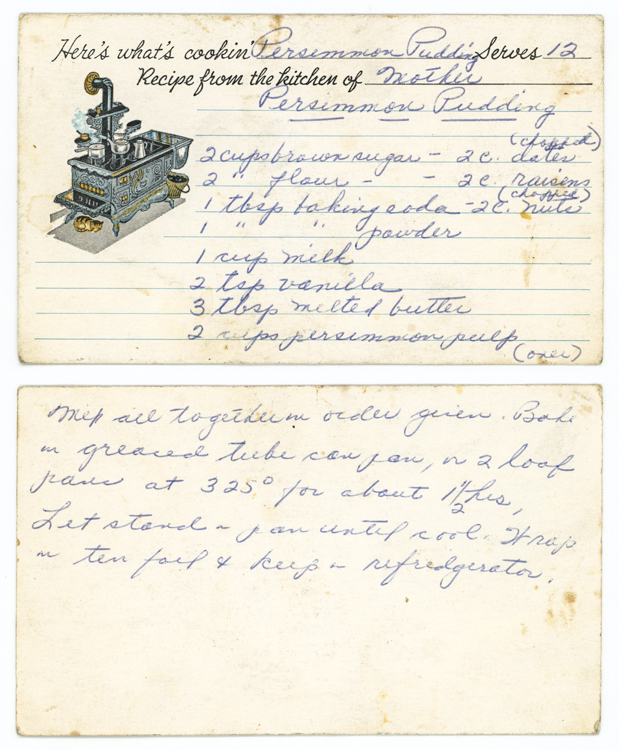 Here's what's cookin' Persemmon Pudding Serves 12
Recipe from the kitchen of Mother
Persemmon Pudding
(chopped)
2 cups brown sugar - 2 c. dates
2 " flour - - 2 c. raisens
(chopped)
1 tbsp baking soda - 2 c. nuts
1 " " powder
1 cup milk
2 tsp vanilla
3 tbsp melted butter
2 cups persemmon pulp
(over)
Mix all together in order given. Bake
in greased tube can pan, or 2 loaf
pans at 325° for about 1 1/2 hrs,
Let stand in pan until cool. Wrap
in ten foil & keep in refredgerator.